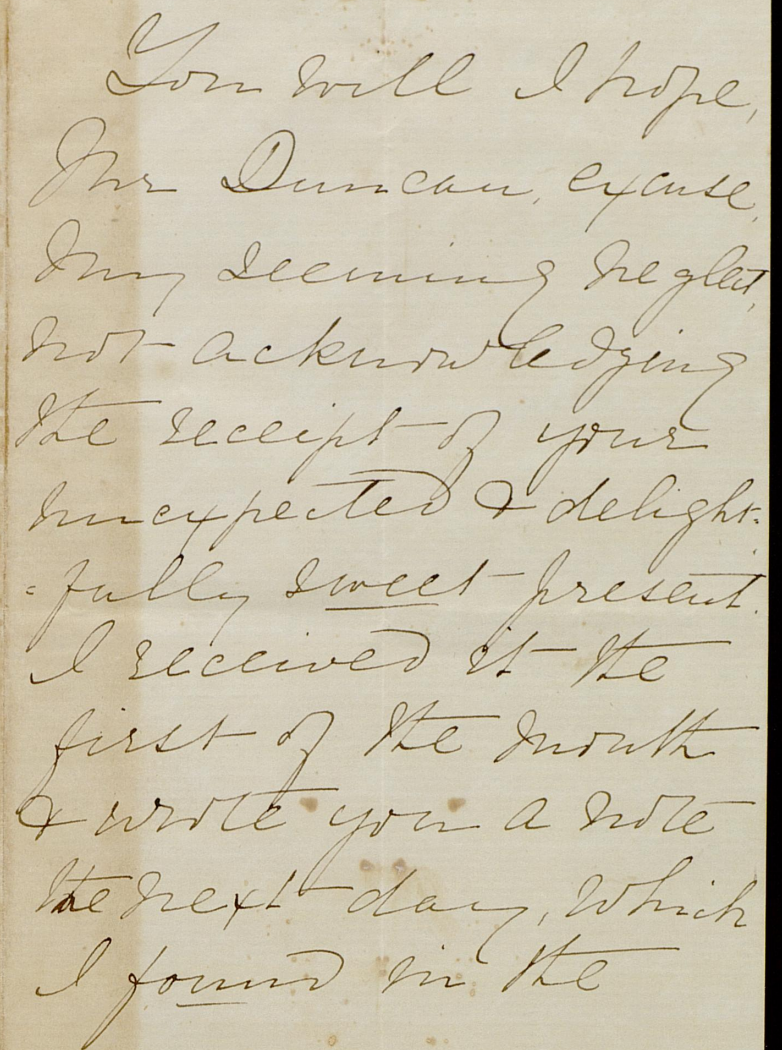 You will I hope,
Mr Duncan, excuse,
my seeming neglect,
not acknowledging
the receipt of your
unexpected & delight-
-fully sweet present.
I received it the
first of the month
& wrote you a note
the next day, which
I found in the